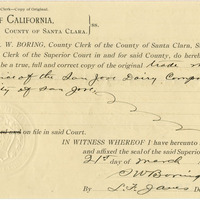 Clerk—Copy of Original.
OF CALIFORNIA,
COUNTY OF SANTA CLARA, } ss.
W. BORING, County Clerk of the County of Santa Clara, S
Clerk of the Superior Court in and for said County, do hereby
be a true, full and correct copy of the original trade m
of the San Jose Dairy Comp
of San Jose
on file in said Court.
IN WITNESS WHEREOF I have hereunto
and affixed the seal of the said Superior
21st day of March
Boring
By